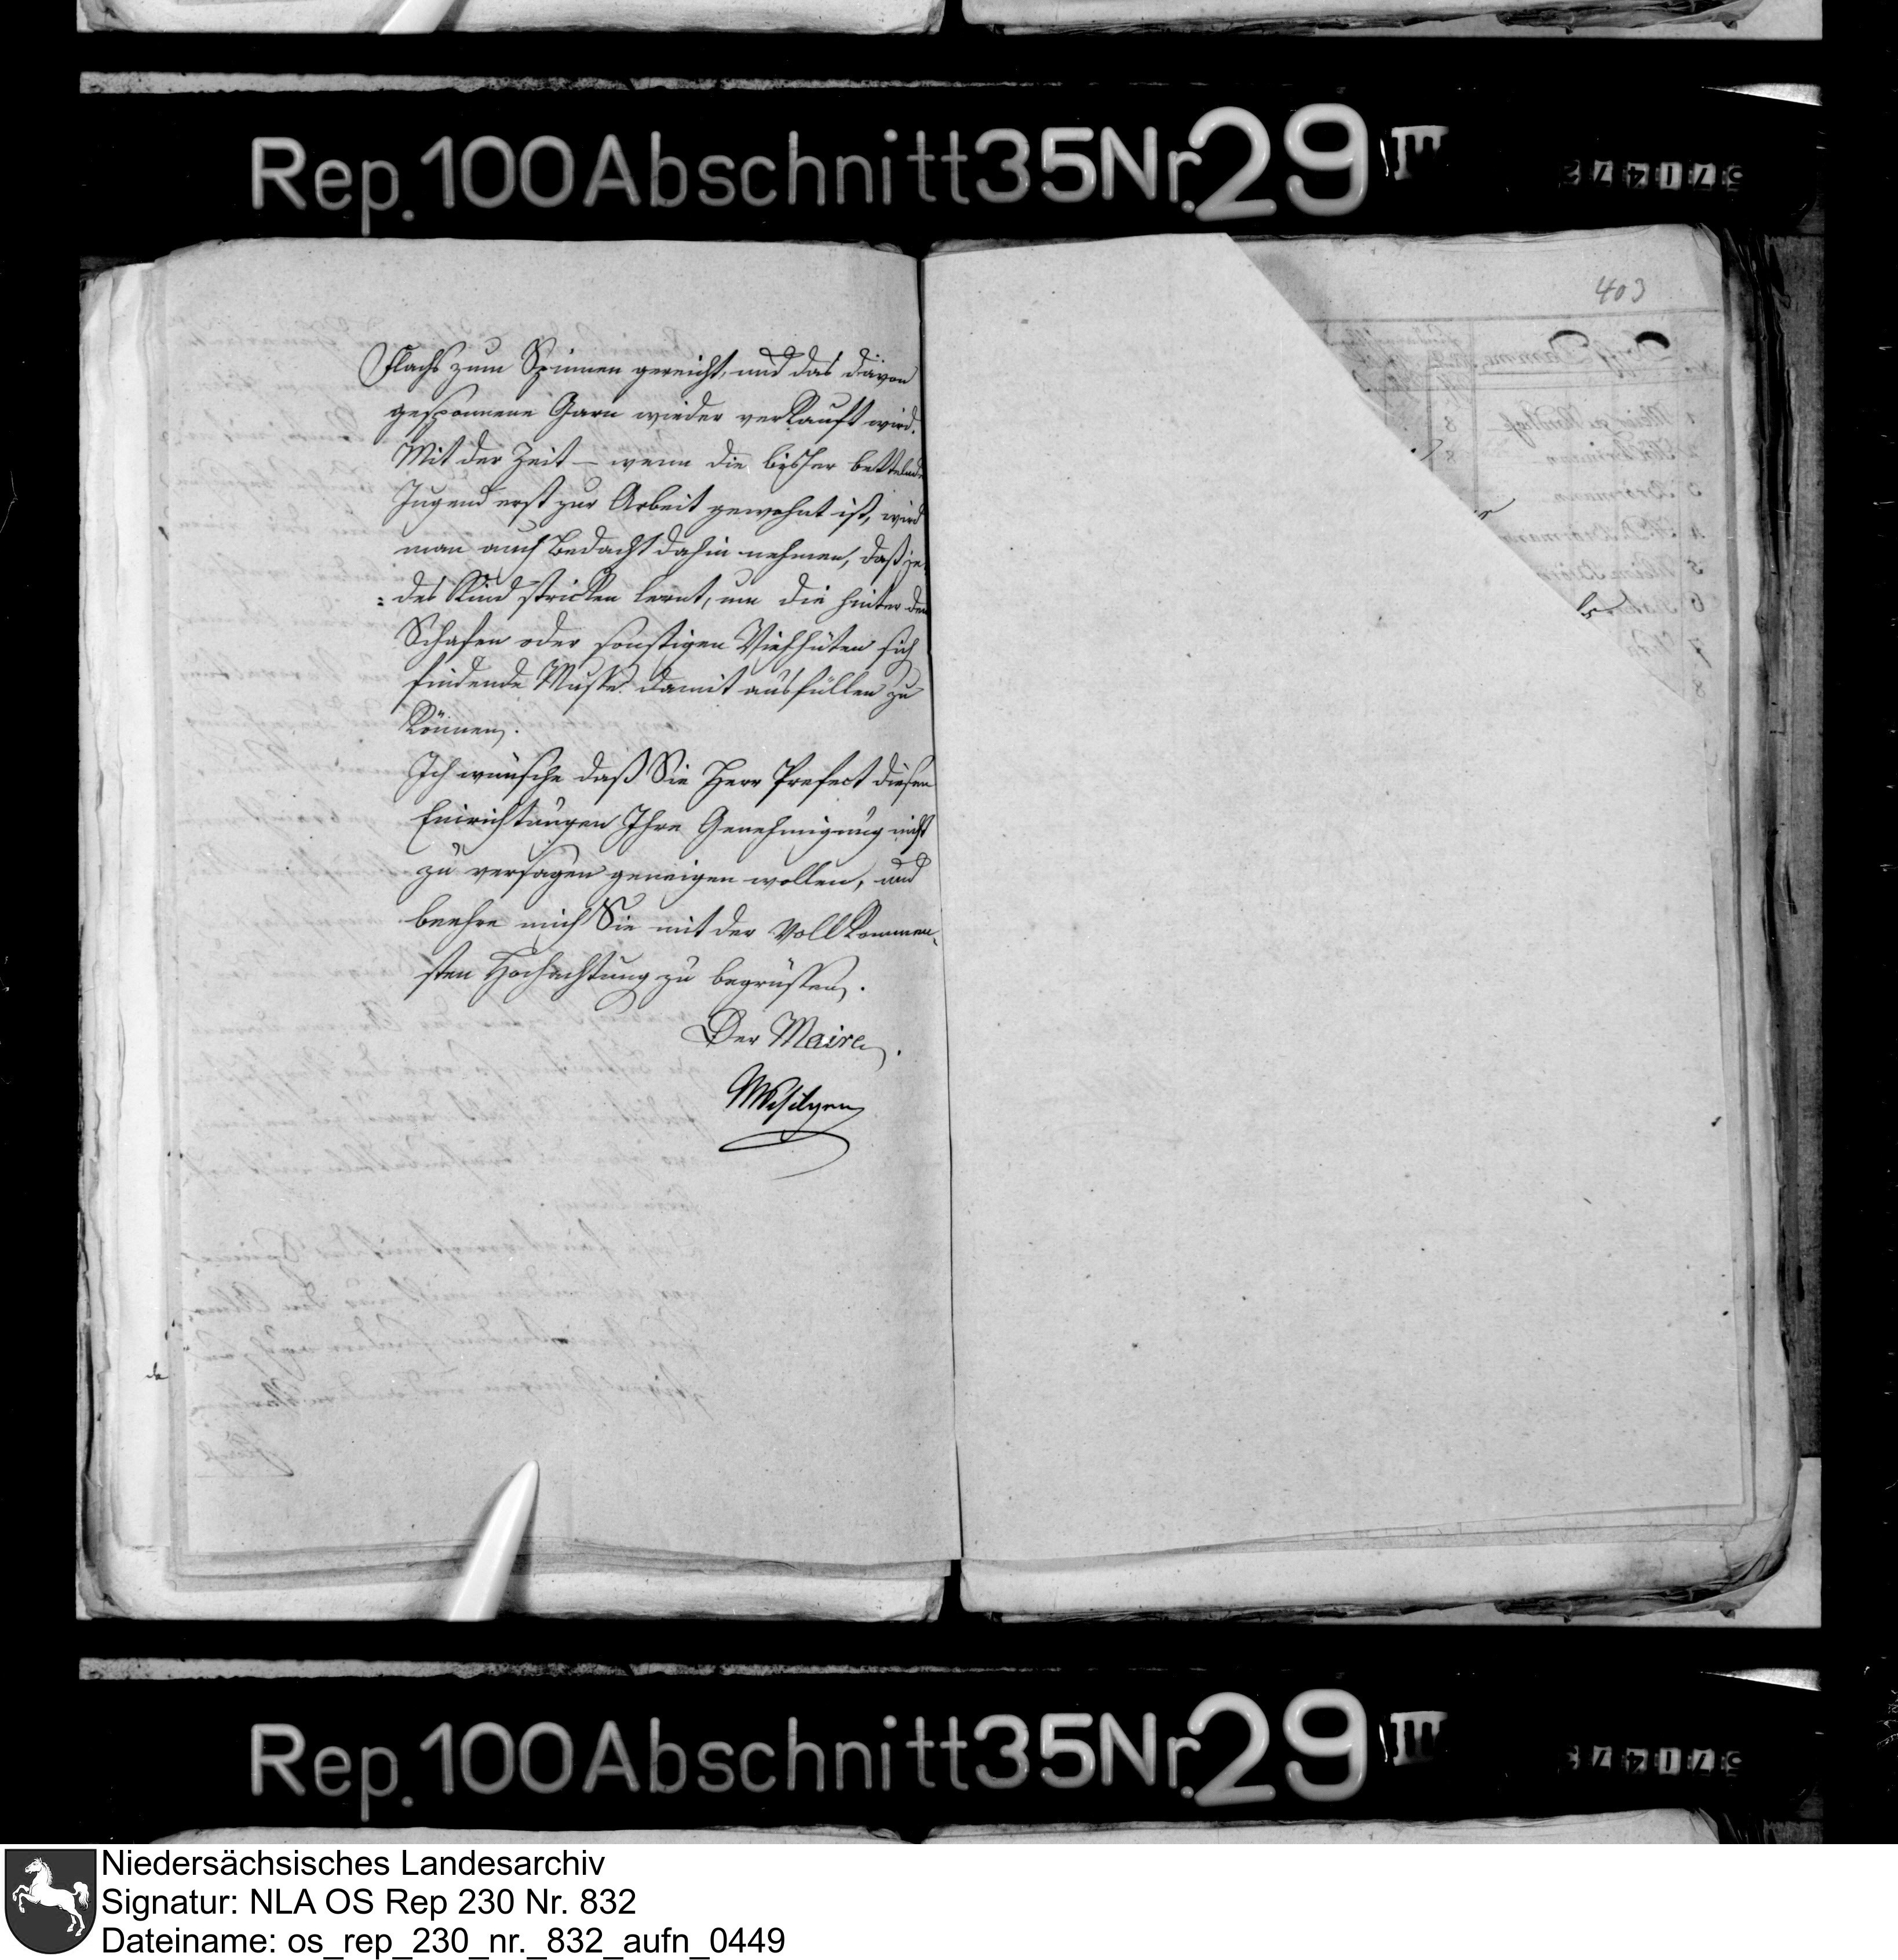 Rep. 100 Abschnitt 35 Nr. 29 III
403
Flachs zum Spinnen gereicht, und das davon
gesponnene Garn wieder verkauft wird.
Mit der Zeit – wenn die bisher bettelnde
Jugend erst zur Arbeit gewohnt ist, wird
man auch Bedacht dahin nehmen, daß je=
=des Kind stricken lernt, um die hinter den
Schafen oder sonstigen Viehhüten sich
findende Musse damit ausfüllen zu
können.
Ich wünsche daß Sie Herr Prefect diesen
Einrichtungen Ihre Genehmigung nicht
zu versagen geneigen wollen, und
beehre mich Sie mit der vollkommen-
sten Hochachtung zu begrüssen.
Der Maire.
Rep. 100 Abschnitt 35 Nr. 29 III
Niedersächsisches Landesarchiv
Signatur: NLA OS Rep 230 Nr. 832
Dateiname: os_rep_230_nr._832_aufn_0449